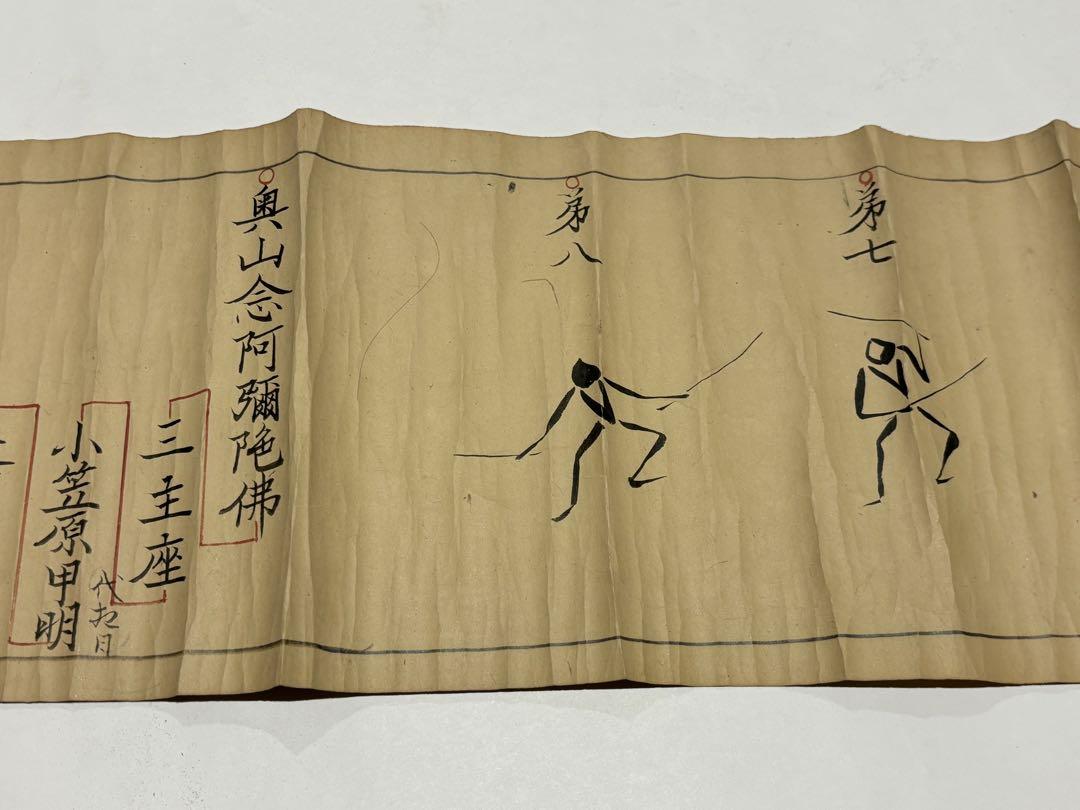 第七
第八
奥山念阿彌陀佛
三主座
小笠原甲明